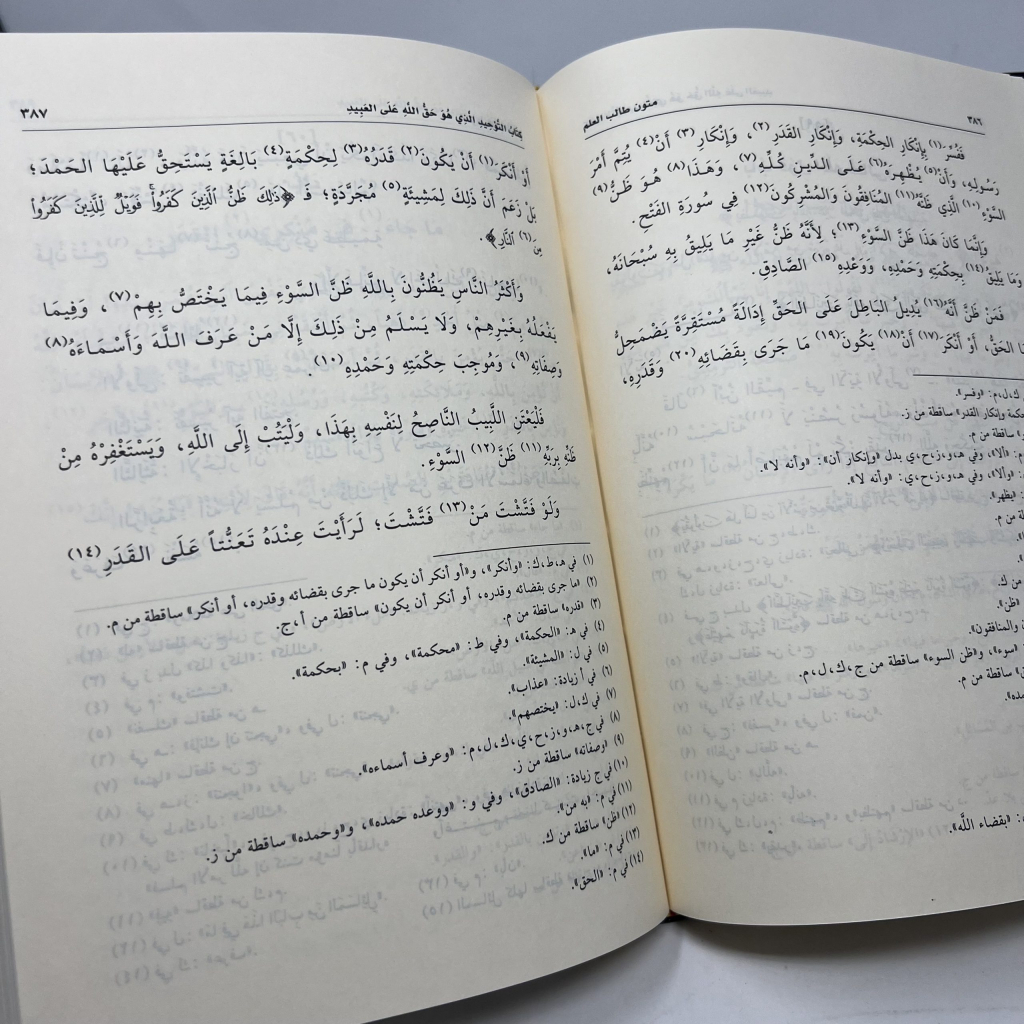 ٣٨٦ متون طالب العلم
فَفُسِّرَ(١) بِإِنْكَارِ الحِكْمَةِ، وَإِنْكَارِ القَدَرِ(٢)، وَإِنْكَارِ(٣) أَنْ(٤) يُتِمَّ أَمْرَ
رَسُولِهِ، وَأَنْ(٥) يُظْهِرَهُ(٦) عَلَى الدِّينِ كُلِّهِ(٧)، وَهَذَا(٨) هُوَ ظَنُّ(٩)
السَّوْءِ(١٠) الَّذِي ظَنَّهُ(١١) المُنَافِقُونَ وَالمُشْرِكُونَ(١٢) فِي سُورَةِ الفَتْحِ.
وَإِنَّمَا كَانَ هَذَا ظَنَّ السَّوْءِ(١٣)؛ لِأَنَّهُ ظَنُّ غَيْرِ مَا يَلِيقُ بِهِ سُبْحَانَهُ،
وَمَا يَلِيقُ(١٤) بِحِكْمَتِهِ وَحَمْدِهِ، وَوَعْدِهِ(١٥) الصَّادِقِ.
فَمَنْ ظَنَّ أَنَّهُ(١٦) يُدِيلُ البَاطِلَ عَلَى الحَقِّ إِدَالَةً مُسْتَقِرَّةً يَضْمَحِلُّ
الحَقُّ، أَوْ أَنْكَرَ(١٧) أَنْ(١٨) يَكُونَ(١٩) مَا جَرَى بِقَضَائِهِ(٢٠) وَقَدَرِهِ،
ك،ل،م: «وفسر».
وإنكار القدر» ساقطة من ز.
ساقطة من م.
«ألا»، وفي هـ،و،ز،ح،ي بدل «وإنكار أن»: «وأنه لا».
«وألا»، وفي هـ،و،ز،ح،ي: «وأنه لا».
يظهر».
من م.
من ك.
«ظن».
والمنافقون».
«سوء»، و«ظن السوء» ساقطة من ج،ك،ل،م.
ساقطة من م.
«بقضاء الله».
كِتَابُ التَّوْحِيدِ الَّذِي هُوَ حَقُّ اللَّهِ عَلَى العَبِيدِ ٣٨٧
أَوْ أَنْكَرَ(١) أَنْ يَكُونَ(٢) قَدَرُهُ(٣) لِحِكْمَةٍ(٤) بَالِغَةٍ يَسْتَحِقُّ عَلَيْهَا الحَمْدَ؛
بَلْ زَعَمَ أَنَّ ذَلِكَ لِمَشِيئَةٍ(٥) مُجَرَّدَةٍ؛ فَـ ﴿ذَلِكَ ظَنُّ الَّذِينَ كَفَرُوا فَوَيْلٌ لِلَّذِينَ كَفَرُوا
مِنَ(٦) النَّارِ﴾.
وَأَكْثَرُ النَّاسِ يَظُنُّونَ بِاللَّهِ ظَنَّ السَّوْءِ فِيمَا يَخْتَصُّ بِهِمْ(٧)، وَفِيمَا
يَفْعَلُهُ بِغَيْرِهِمْ، وَلَا يَسْلَمُ مِنْ ذَلِكَ إِلَّا مَنْ عَرَفَ اللَّهَ وَأَسْمَاءَهُ(٨)
وَصِفَاتِهِ(٩)، وَمُوجِبَ حِكْمَتِهِ وَحَمْدِهِ(١٠).
فَلْيَعْتَنِ اللَّبِيبُ النَّاصِحُ لِنَفْسِهِ بِهَذَا، وَلْيَتُبْ إِلَى اللَّهِ، وَيَسْتَغْفِرْهُ مِنْ
ظَنِّهِ بِرَبِّهِ(١١) ظَنَّ(١٢) السَّوْءِ.
وَلَوْ فَتَّشْتَ مَنْ(١٣) فَتَّشْتَ؛ لَرَأَيْتَ عِنْدَهُ تَعَنُّتاً عَلَى القَدَرِ(١٤)
(١) في هـ،ط،ك: «وأنكر»، و«أو أنكر أن يكون ما جرى بقضائه وقدره، أو أنكر» ساقطة من م.
(٢) «ما جرى بقضائه وقدره، أو أنكر أن يكون» ساقطة من أ،ج.
(٣) «قدره» ساقطة من م.
(٤) في هـ: «الحكمة»، وفي ط: «محكمة»، وفي م: «بحكمة».
(٥) في ل: «المشيئة».
(٦) في أ زيادة: «عذاب».
(٧) في ك،ل: «يختصهم».
(٨) في ج،هـ،و،ز،ح،ي،ك،ل،م: «وعرف أسماءه».
(٩) «وصفاته» ساقطة من ز.
(١٠) في ج زيادة: «الصادق»، وفي و: «ووعده حمده»، و«وحمده» ساقطة من ز.
(١١) في م: «به من».
(١٢) «ظن» ساقطة من ك.
(١٣) في م: «ما».
(١٤) في م: «الحق».